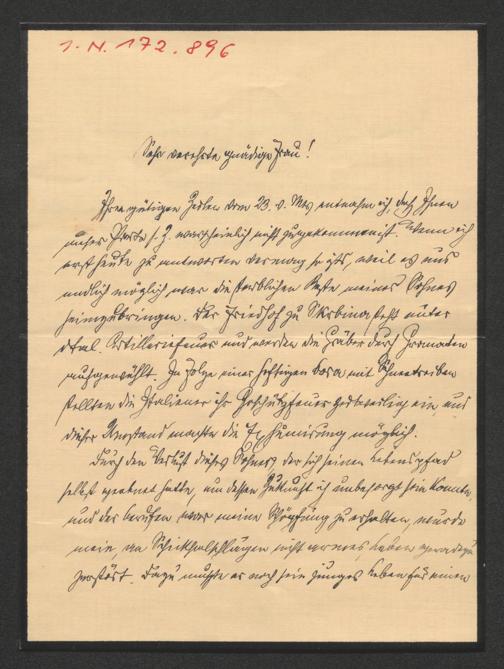 I.N. 172.896
Sehr verehrte gnädige Frau!
Ihren gütigen Zeilen vom 23. v. Mts entnehm ich, daß Ihnen
unsere Parte s. Z. warscheinlich nicht zugekommen ist. Wenn ich
erst heute zu antworten vermag so ists, weil es uns
endlich möglich war die sterblichen Reste meines Sohnes
heimzubringen. Der Friedhof zu Skrbina steht unter
ital. Artilleriefeuer und werden die Gräber durch Granaten
aufgewühlt. Zu Folge einer heftigen Bora mit Schneetreiben
stellten die Italiener ihr Geschützfeuer zeitweilig ein und
dieser Umstand machte die Exhumirung möglich.
Durch den Verlust dieses Sohnes, der sich seinen Lebenspfad
selbst geebnet hatte, um dessen Zukunft ich unbesorgt sein konnte,
und der berufen war meine Schöpfung zu erhalten, wurde
mein, an Schicksalschlägen nicht armes, Leben geradezu
zerstört. Dazu mußte er noch sein junges Leben für einen